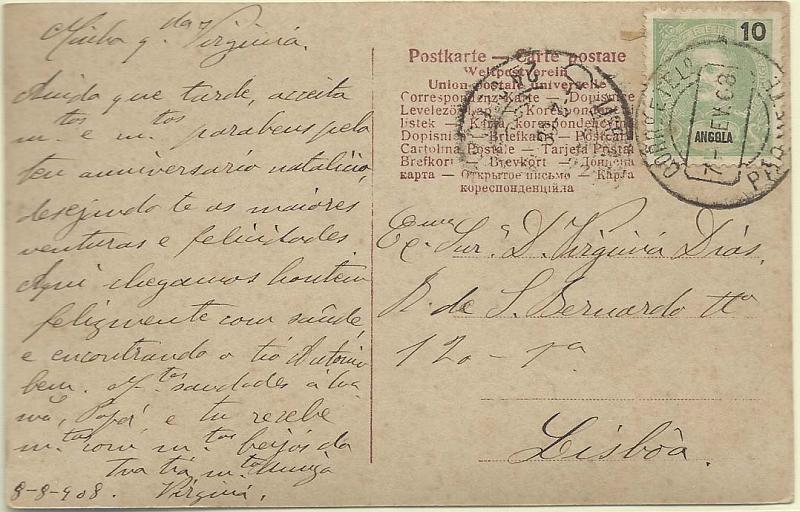 Minha q.da Virginia.
Ainda que tarde, acceita
m.tos e m.tos parabens pelo
teu anniversario natalicio,
desejando te as maiores
venturas e felicidades
Aqui chegamos hontem
felizmente com saude,
e encontrando o tio Antonio
bem. M.tas saudades á tua
mã, Papá, e tu recebe
m.tos com m.tos beijos da
tua tia m.to amiga
8-8-908. Virginia.
Postkarte — Carte postale
Weltpostverein
Union postale universelle
Correspondenz-Karte — Dopisnice
Levelező
listek — Karta korespondencyjna
Dopisni Briefkaart — Postcard
Cartolina Postale — Tarjeta Postal
Brefkort — Brevkort — Дописна
карта — Открытое письмо — Карта
кореспонденційла
10
ANGOLA
Ex.ma Snr.a D. Virginia Dias.
R. de S. Bernardo n.o
120 - 1.a
Lisbôa.